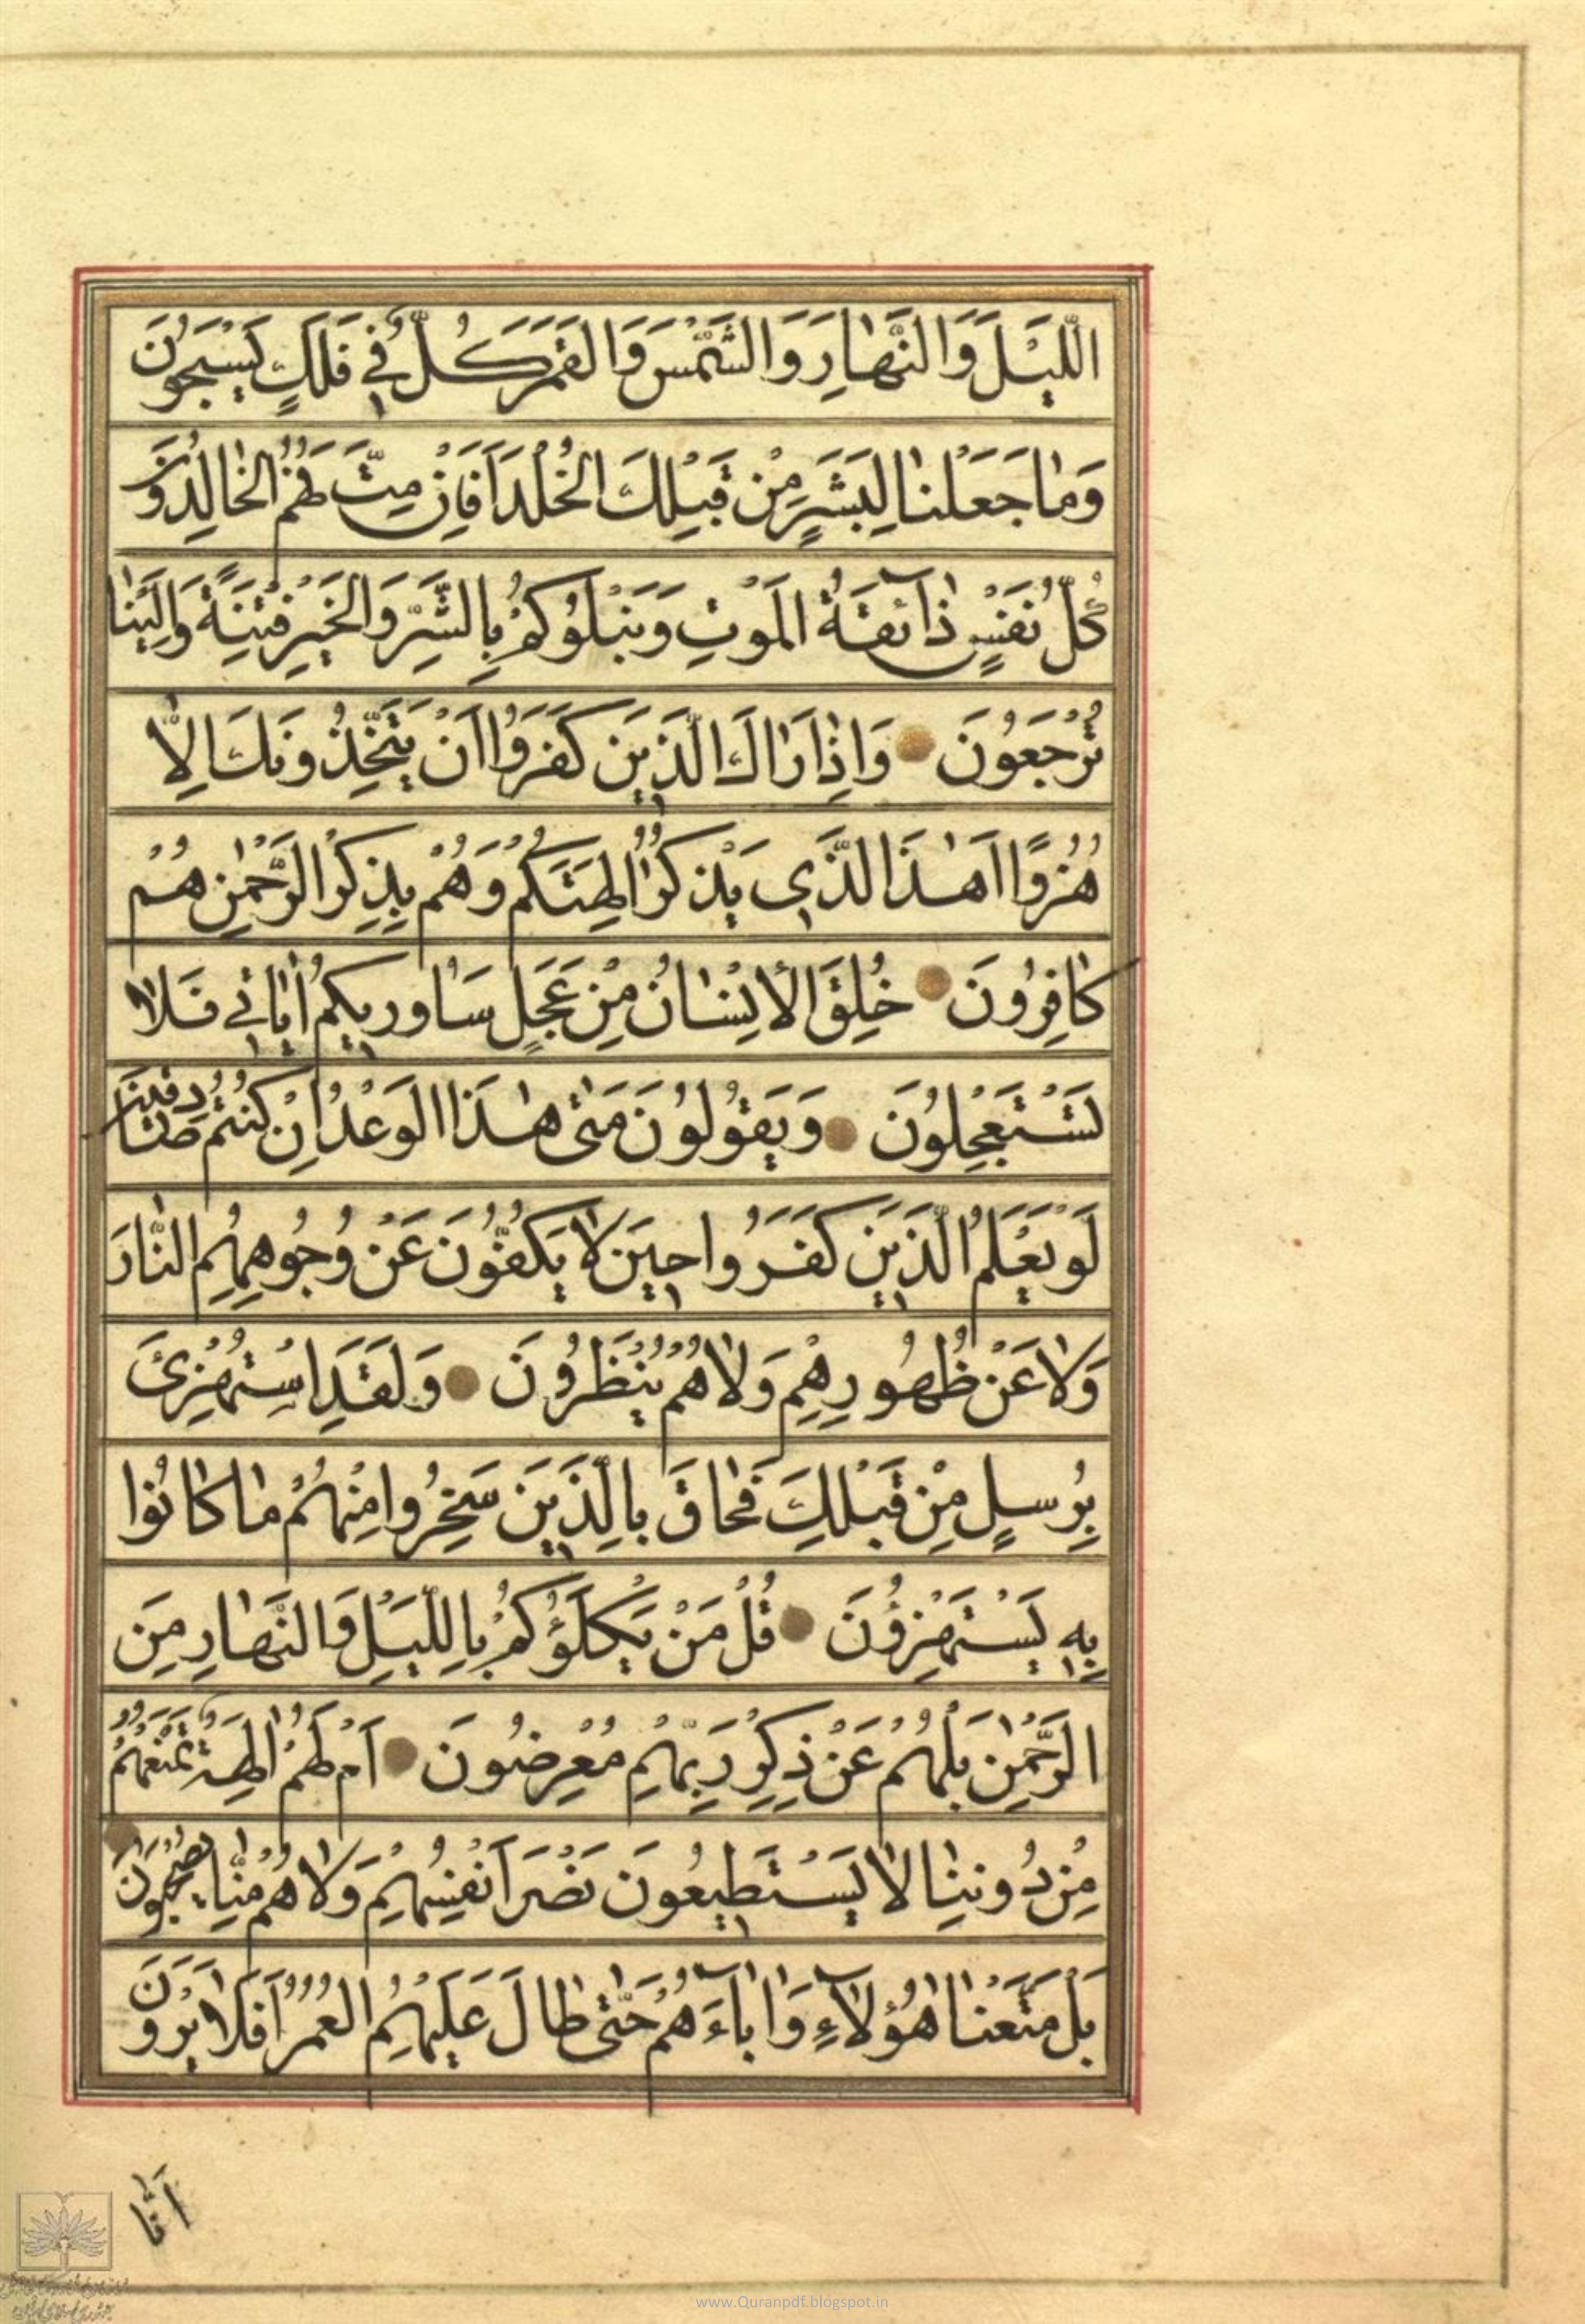 اللَّيْلَ وَالنَّهٰارَ وَالشَّمْسَ وَالقَمَرَ كُلٌّ فِي فَلَكٍ يَسْبَحُونَ
وَمٰا جَعَلْنٰا لِبَشَرٍ مِنْ قَبْلِكَ الخُلْدَ اَفَاِنْ مِتَّ فَهُمُ الخٰالِدُونَ
كُلُّ نَفْسٍ ذٰآئِقَةُ المَوْتِ وَنَبْلُوُكُمْ بِالشَّرِّ وَالخَيْرِ فِتْنَةً وَاِلَيْنٰا
تُرْجَعُونَ وَاِذٰا رَاٰكَ الَّذِينَ كَفَرُوٓا اَنْ يَتَّخِذُونَكَ اِلّٰا
هُزُوًا اَهٰذَا الَّذِي يَذْكُرُ اٰلِهَتَكُمْ وَهُمْ بِذِكْرِ الرَّحْمٰنِ هُمْ
كٰافِرُونَ خُلِقَ الْاِنْسٰانُ مِنْ عَجَلٍ سَاُورِيكُمْ اٰيٰاتِي فَلٰا
تَسْتَعْجِلُونَ وَيَقُولُونَ مَتىٰ هٰذَا الوَعْدُ اِنْ كُنْتُمْ صٰادِقِينَ
لَوْ يَعْلَمُ الَّذِينَ كَفَرُوا حِينَ لٰا يَكُفُّونَ عَنْ وُجُوهِهِمُ النّٰارَ
وَلٰا عَنْ ظُهُورِهِمْ وَلٰا هُمْ يُنْظَرُونَ وَلَقَدِ اسْتُهْزِئَ
بِرُسُلٍ مِنْ قَبْلِكَ فَحٰاقَ بِالَّذِينَ سَخِرُوا مِنْهُمْ مٰا كٰانُوا
بِهِ يَسْتَهْزِؤُنَ قُلْ مَنْ يَكْلَؤُكُمْ بِاللَّيْلِ وَالنَّهٰارِ مِنَ
الرَّحْمٰنِ بَلْ هُمْ عَنْ ذِكْرِ رَبِّهِمْ مُعْرِضُونَ اَمْ لَهُمْ اٰلِهَةٌ تَمْنَعُهُمْ
مِنْ دُونِنٰا لٰا يَسْتَطِيعُونَ نَصْرَ اَنْفُسِهِمْ وَلٰا هُمْ مِنّٰا يُصْحَبُونَ
بَلْ مَتَّعْنٰا هٰؤُلٰآءِ وَاٰبٰآءَهُمْ حَتّىٰ طٰالَ عَلَيْهِمُ العُمُرُ اَفَلٰا يَرَوْنَ
اَنّٰا
www.Quranpdf.blogspot.in